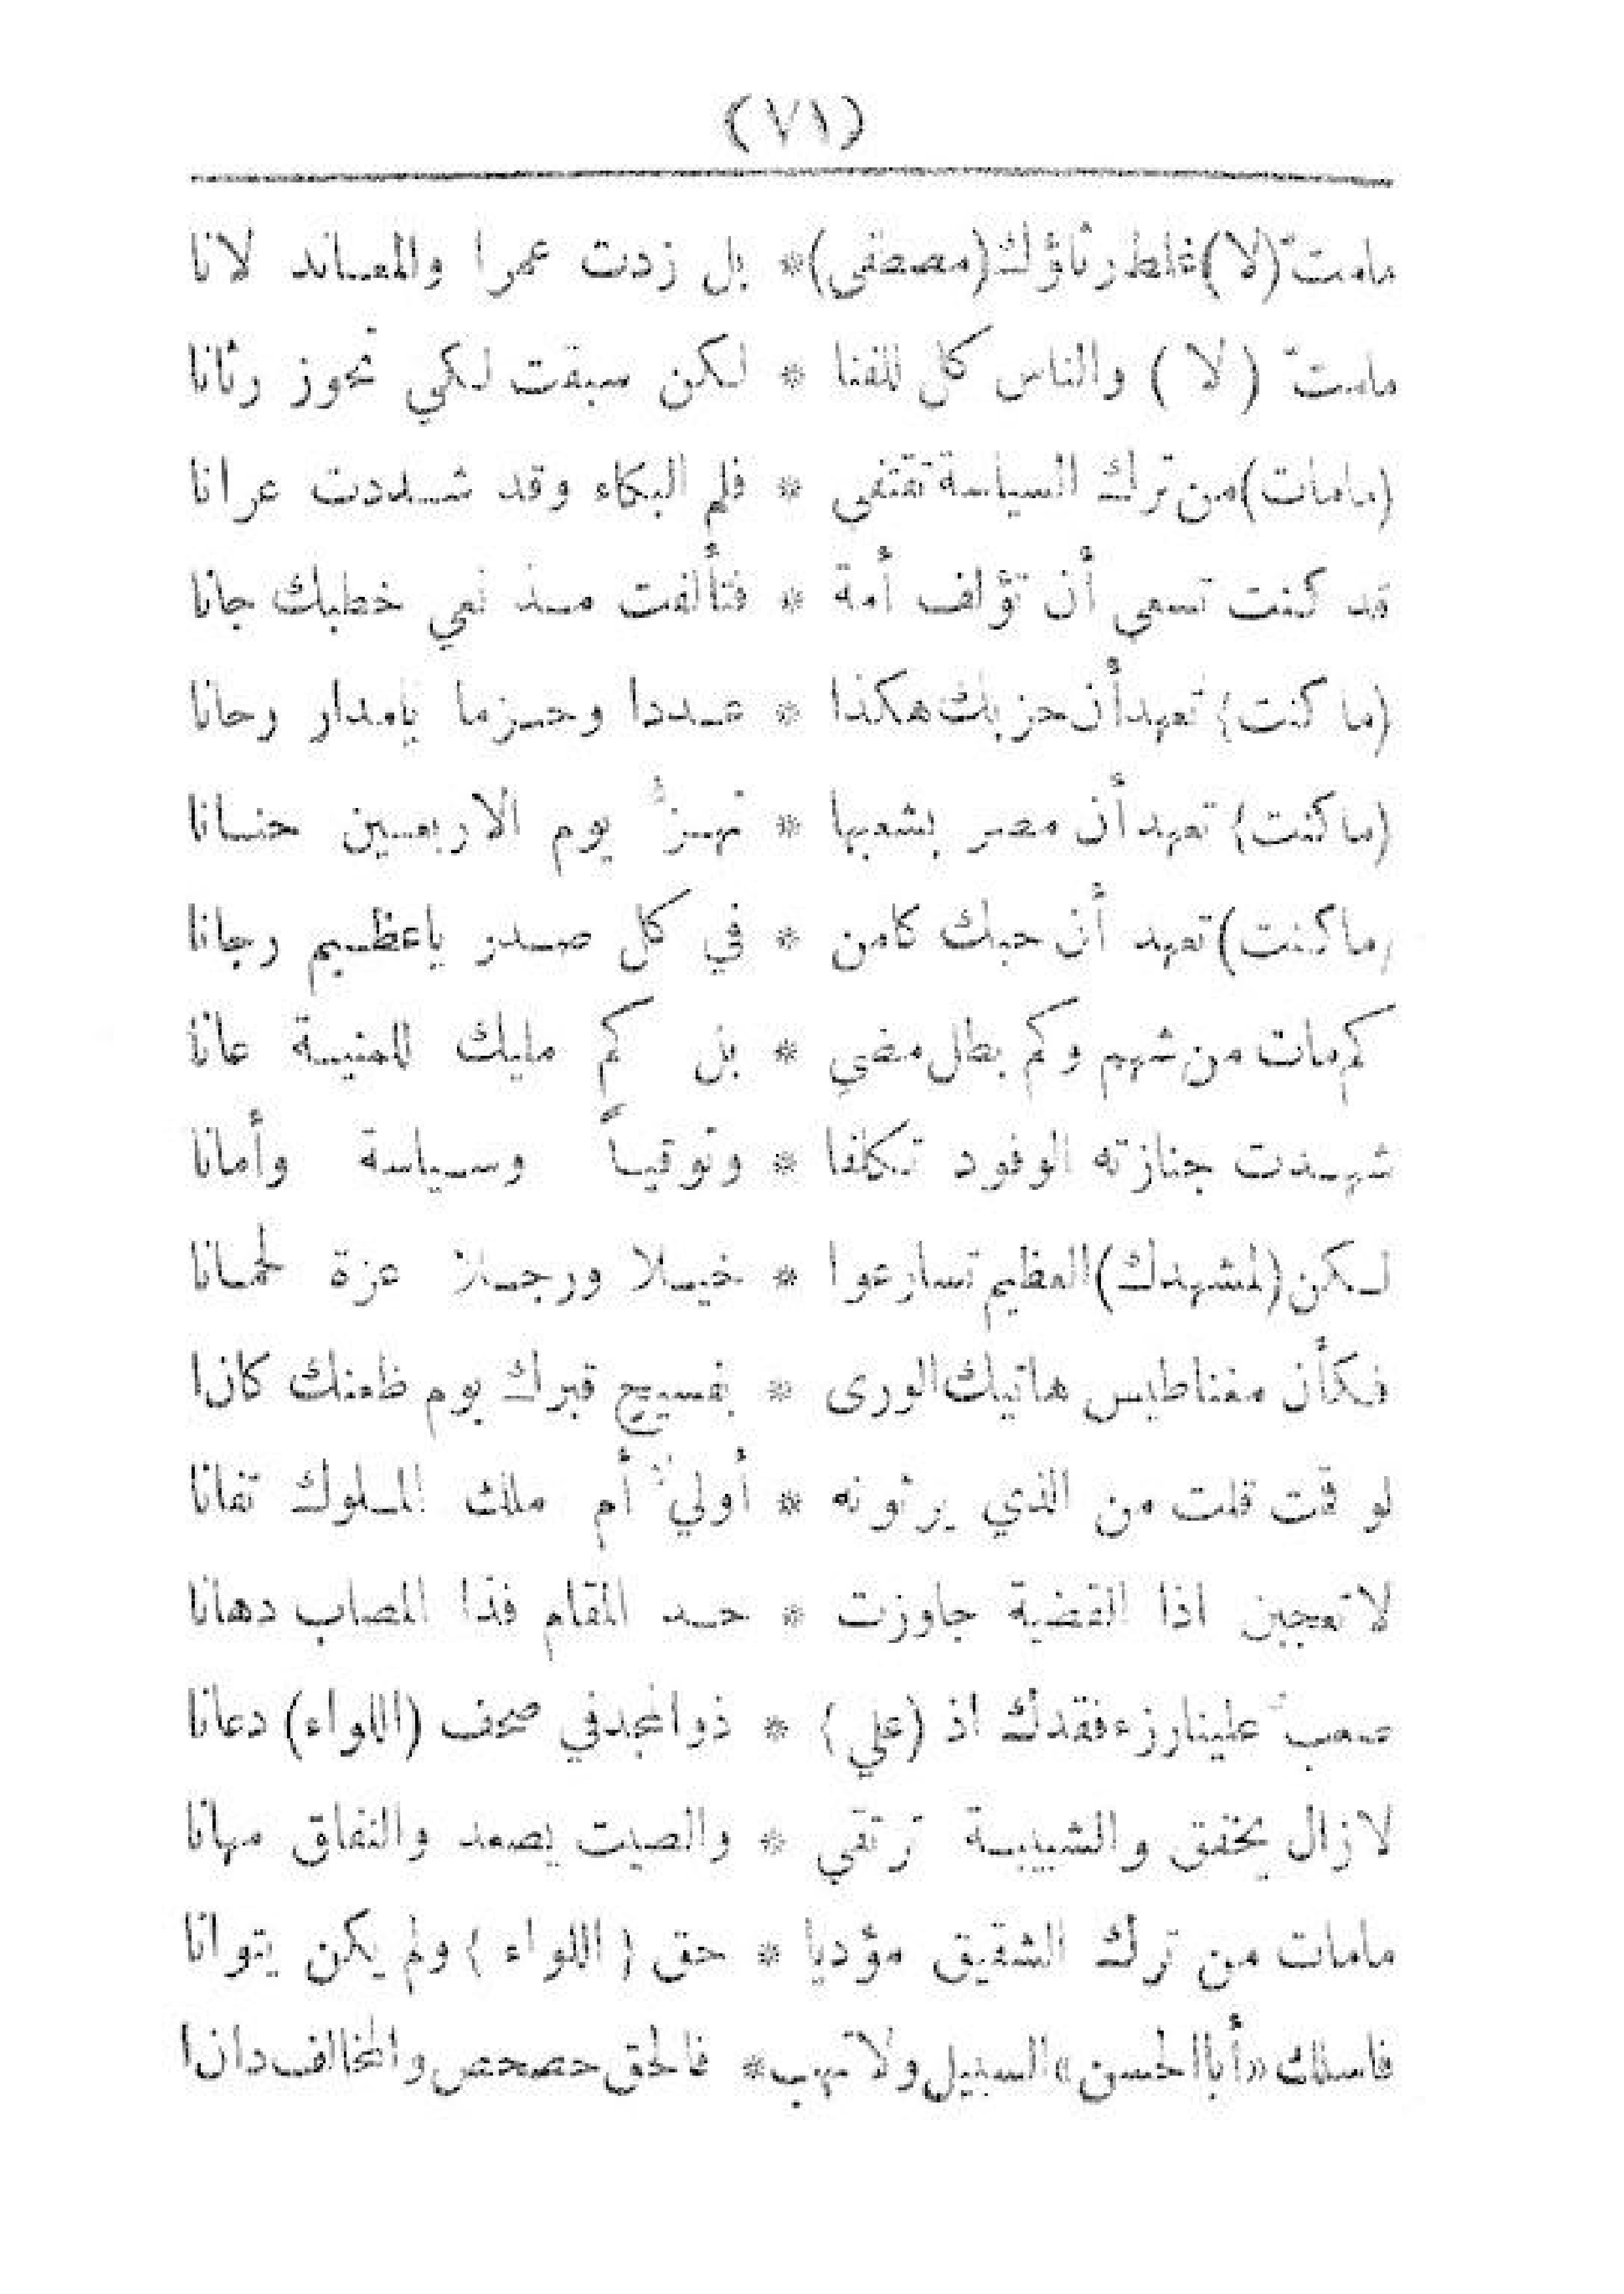 (٧١)
مامتّ (لا) غلط رثاؤك (مصطفى) * بل زدت عمرا والمعاند لانا
مامتّ (لا) والناس كل للفنا * لكن سبقت لكي تحوز رثانا
(مامات) من ترك السياسة تقتفى * فلم البكاء وقد شددت عرانا
قد كنت تسعى أن تؤلف أمة * فتألفت مذ نعي خطبك جانا
(ما كنت) تعهد أن حزبك هكذا * عددا وحزما يامدار رحانا
(ما كنت) تعهد أن مصر بشعبها * تهتز يوم الاربعين حنانا
(ما كنت) تعهد أن حبك كامن * في كل صدر ياعظيم رجانا
كم مات من شهم وكم بطل مضى * بل كم مليك للمنية عانا
شهدت جنازته الوفود تكلفا * وتوقياً وسياسة وأمانا
لكن (لمشهدك) العظيم تسارعوا * خيلا ورجلا عزة لحمانا
فكأن مغناطيس هاتيك الورى * بفسيح قبرك يوم ظعنك كانا
لو قمت قلت من الذي يرثونه * أوليّ أم ملك الملوك تفانا
لاتعجبن اذا القضية جاوزت * حد المقام فذا المصاب دهانا
صعبٌ علينا رزء فقدك اذ (علي) * ذو المجد في صحف (اللواء) دعانا
لازال يخفق والشبيبة ترتقي * والصيت يصعد والنفاق مهانا
مامات من ترك الشقيق مؤديا * حق (اللواء) ولم يكن يتوانا
فاسلك «أبا الحسن» السبيل ولاتهب * فالحق حصحص والمخالف دانا